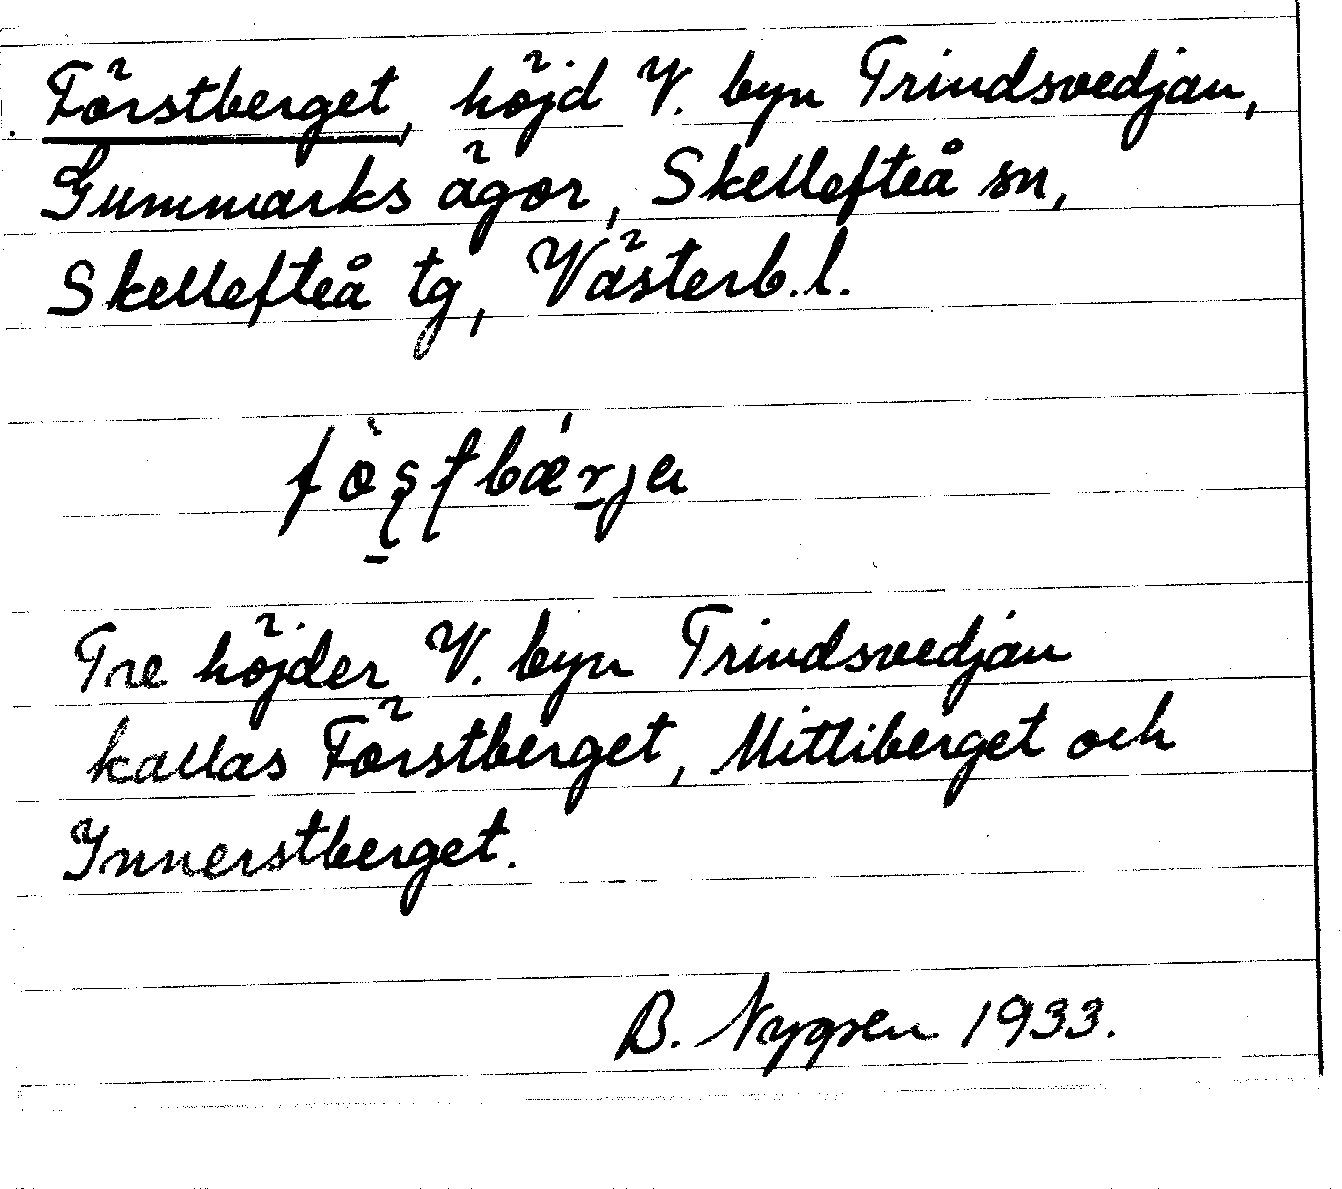 Förstberget, höjd V. byn Trindsvedjan,
Gummarks ägor, Skellefteå sn,
Skellefteå tg, Västerb.l.
Tre höjder V. byn Trindsvedjan
kallas Förstberget, Mittiberget och
Innerstberget.
B. Nygren 1933.